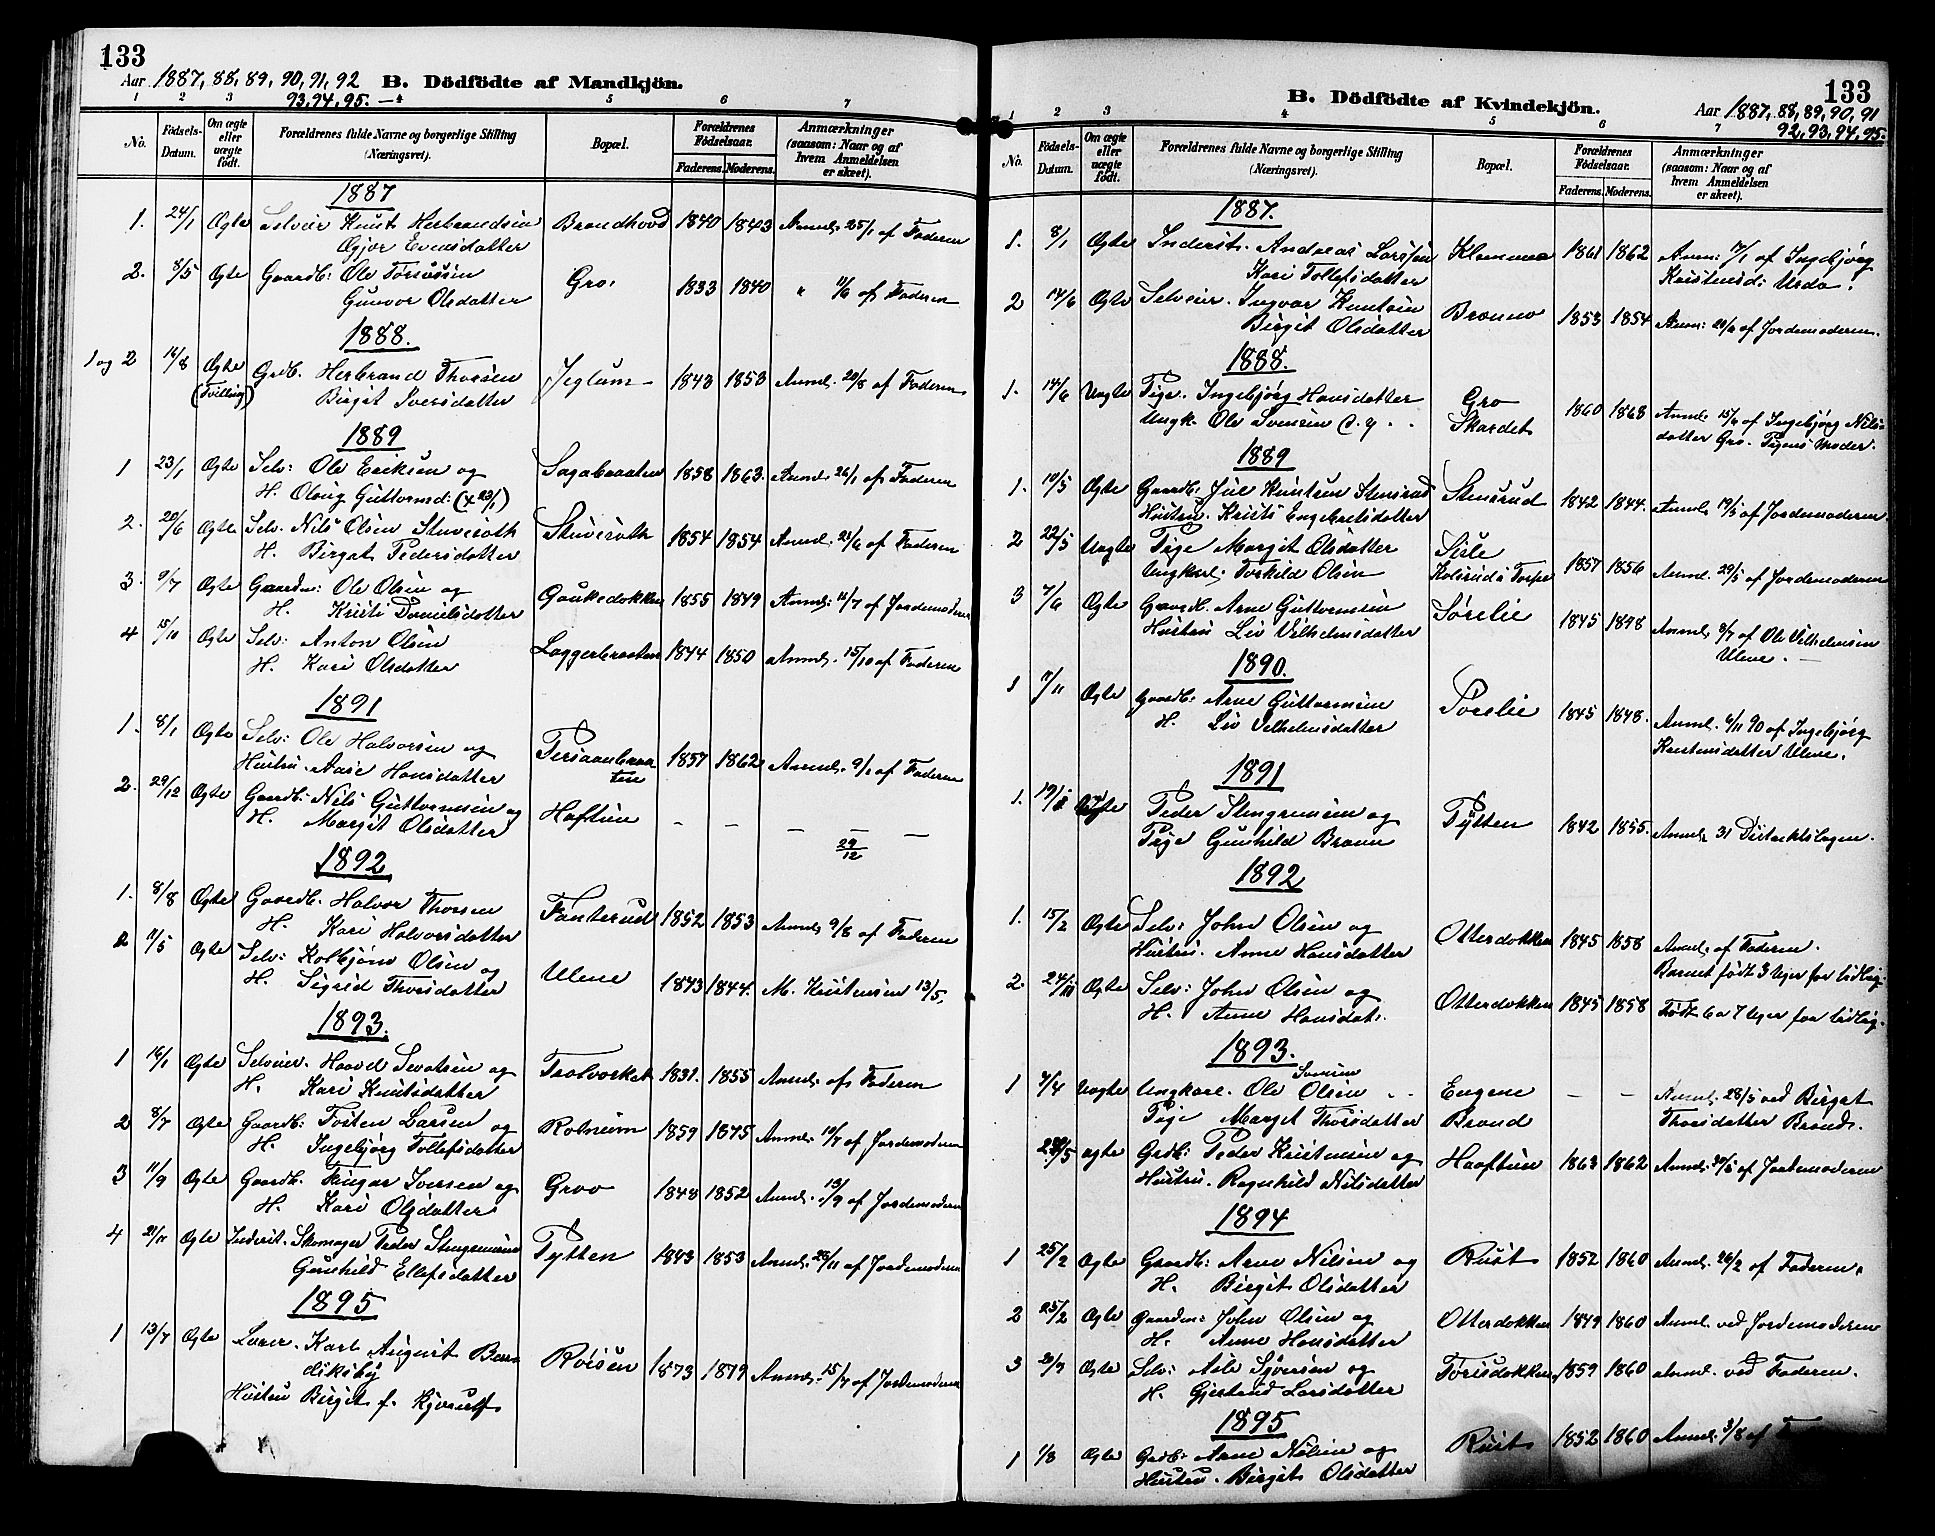 133
Aar 1887, 88, 89, 90, 91, 92
93, 94, 95. —
B. Dödfödte af Mandkjön.
1 2 3 4 5 6 7
No.
Födsels-Datum.
Om ægte eller uægte födt.
Forældrenes fulde Navne og borgerlige Stilling
(Næringsvei).
Bopæl.
Forældrenes Födselsaar.
Faderens. Moderens.
Anmærkninger
(saasom: Naar og af
hvem Anmeldelsen
er skeet).
1887
1. 24/1 Ægte Selveier Knut Herbrandsen Brandhovd 1840 1843 Anmel. 25/1 af Faderen
Gjør Evensdatter
2. 8/5 Ægte Gaardb: Ole Torsussen Gro, 1833 1840 " 11/6 af Faderen
Gunvor Olsdatter
1888.
1 og 2 16/8 Ægte Grdb. Herbrand Thorsen Jeglum 1843 1853 Anmel. 20/8 af Faderen
(Tvilling) Birgit Iversdatter
1889
1 23/1 Ægte Selv: Ole Eriksen og Sagabraaten 1858 1863. Anmel. 26/1 af Faderen
H. Olaug Guttormd: (+ 23/1)
2. 20/6 Ægte Selv. Nils Olsen Stuveroth Stuveroth 1854 1854 Anmel. 21/6 af Faderen
H. Birgit Pedersdatter
3. 9/7 Ægte Gaardm: Ole Olsen og Gaukedokken 1855 1849 Anmel: 11/7 af Jordemoderen
H. Kristi Danielsdatter
4 15/10 Ægte Selv: Anton Olsen Laggerbraaten 1844 1850 Anmel. 15/10 af Faderen
H. Kari Olsdatter
1891
1. 8/1 Ægte Selv: Ole Halvorsen og Persaanbraa- 1857 1862 Anmel. 9/1 af Faderen
Hustru Aase Hansdatter ten
2. 29/12 Ægte Gaardb: Nils Guttormsen og Haftun — — — — —
H. Margit Olsdatter 29/12
1892
1. 8/8 Ægte Gaardb. Halvor Thorsen Fanterud 1852 1853 Anmel. 9/8 af Faderen
H. Kari Halvorsdatter
2 11/5 Ægte Selv: Kolbjørn Olsen og Ulene 1843 1844. M. Kristensen 13/5.
H. Sigrid Thorsdatter
1893.
1 16/1 Ægte Selveier. Haavd Sevatsen og Trolvorket 1831. 1855 Anmel. af Faderen
H. Kari Knutsdatter
2 8/7 Ægte Gaardb: Tosten Larsen og Rotneim 1859 1875 Anmel. 10/7 af Jordemoderen
H. Ingebjørg Tollefsdatter
3 11/9 Ægte Gaardb. Fingar Iversen og Groo 1848 1852 Anmel. 13/9 af Jordemoderen
H. Kari Olsdatter
4 21/11 Ægte Inderst. Skomager Peder Stengrimsen Pytten 1843 1853 Anmel. 23/11 af Jordemoderen
Gunhild Ellefsdatter
1895
1 13/7 Ægte Lærer. Karl August Bern Roisen 1873 1879 Anmel. 15/7 af Jordemoderen
diksby
Hustru Birgit f.
133
B. Dödfödte af Kvindekjön.
Aar 1887, 88, 89, 90, 91
92, 93, 94, 95.
1 2 3 4 5 6 7
No.
Födsels-Datum.
Om ægte eller uægte födt.
Forældrenes fulde Navne og borgerlige Stilling
(Næringsvei).
Bopæl.
Forældrenes Födselsaar.
Faderens. Moderens.
Anmærkninger
(saasom: Naar og af
hvem Anmeldelsen
er skeet).
1887.
1. 8/1 Ægte Inderst. Andreas Larssen Klemma 1861 1862 Anm: 7/1 af Ingebjørg
Kari Tollefsdatter Kristensd: Urdo.
2 14/6 Ægte Selveier. Ingvar Knutsen Bromma 1853 1854 Anm: 20/6 af Jordemoderen.
Birgit Olsdatter
1888.
1. 14/6 Uægte Pige. Ingebjørg Hansdatter Gro 1860 1868 Anmel. 15/6 af Ingebjørg Nils-
Ungk. Ole Svensen Skardet datter Gro. Pigens Moder.
1889
1. 10/5 Ægte Gaardb. Juel Knutsen Stensrud Stensrud 1842 1844. Anmel. 19/5 af Jordemoderen.
Hustru. Kristi Engebretsdatter
2 22/5 Uægte Pige Margit Olsdatter Sisle 1857 1856 Anmel. 29/5 af Jordemoderen
Ungkarl. Torkild Olsen Kolsruds Torpe
3 7/6 Ægte Gaardb. Arne Guttormsen Sørelie 1845 1898 Anmel. 8/7 af Ole Vilhelmsen
Hustru Liv Vilhelmsdatter Ulene. —
1890.
1 11/11 Ægte Gaardb: Arne Guttormsen Sørelie 1845 1848. Anmel. 6/11 90 af Ingebjørg
H. Liv Vilhelmsdatter Knutsdatter Ulene.
1891
1. Uægte Peder Stengrimsen og Pytten 1842 1855. Anmel. 31 Distriktslægen.
Pige Gunhild Bromm
1892
1. 15/2 Ægte Selv: John Olsen og Otterdokken 1845 1858 Anmel. af Faderen.
Hustru. Anne Hansdatter Barnet født 3 Uger for tidlig.
2. 24/10 Ægte Selv: John Olsen og Otterdokken 1845 1858 Født 6 a 7 Uger for tidlig.
H. Anne Hansdat.
1893.
1 7/4 Uægte Ungkarl. Ole Svensen Olsen Eugene — — Anmel. 28/5 ved Birgit
Pige Margit Thorsdatter Brand Thorsdatter Brand.
28/5 ægte Grdb: Peder Kristensen og Haaftun 1863 1862 Anmel. 30/5 af Jordemoderen
Hustru. Ragnhild Nilsdatter
1894
1 25/2 Ægte Gaardb: Arne Nilsen og Rust 1852 1860 Anmel. 26/2 af Faderen.
H. Birgit Olsdatter
2 25/2 Ægte Gaardm: John Olsen og Otterdokken 1849 1860 Anmel. ved Jordemoderen
H. Anne Hansdatter
3 21/7 Ægte Selv: Asle Syversen og Torisdokken 1859 1860 Anmel. ved Faderen.
H. Gjertrud Larsdatter
1895
1 1/8 Ægte Grdb: Arne Nilsen og Rust 1852 1860 Anmel. 3/8 af
Hustru. Birgit Olsdatter